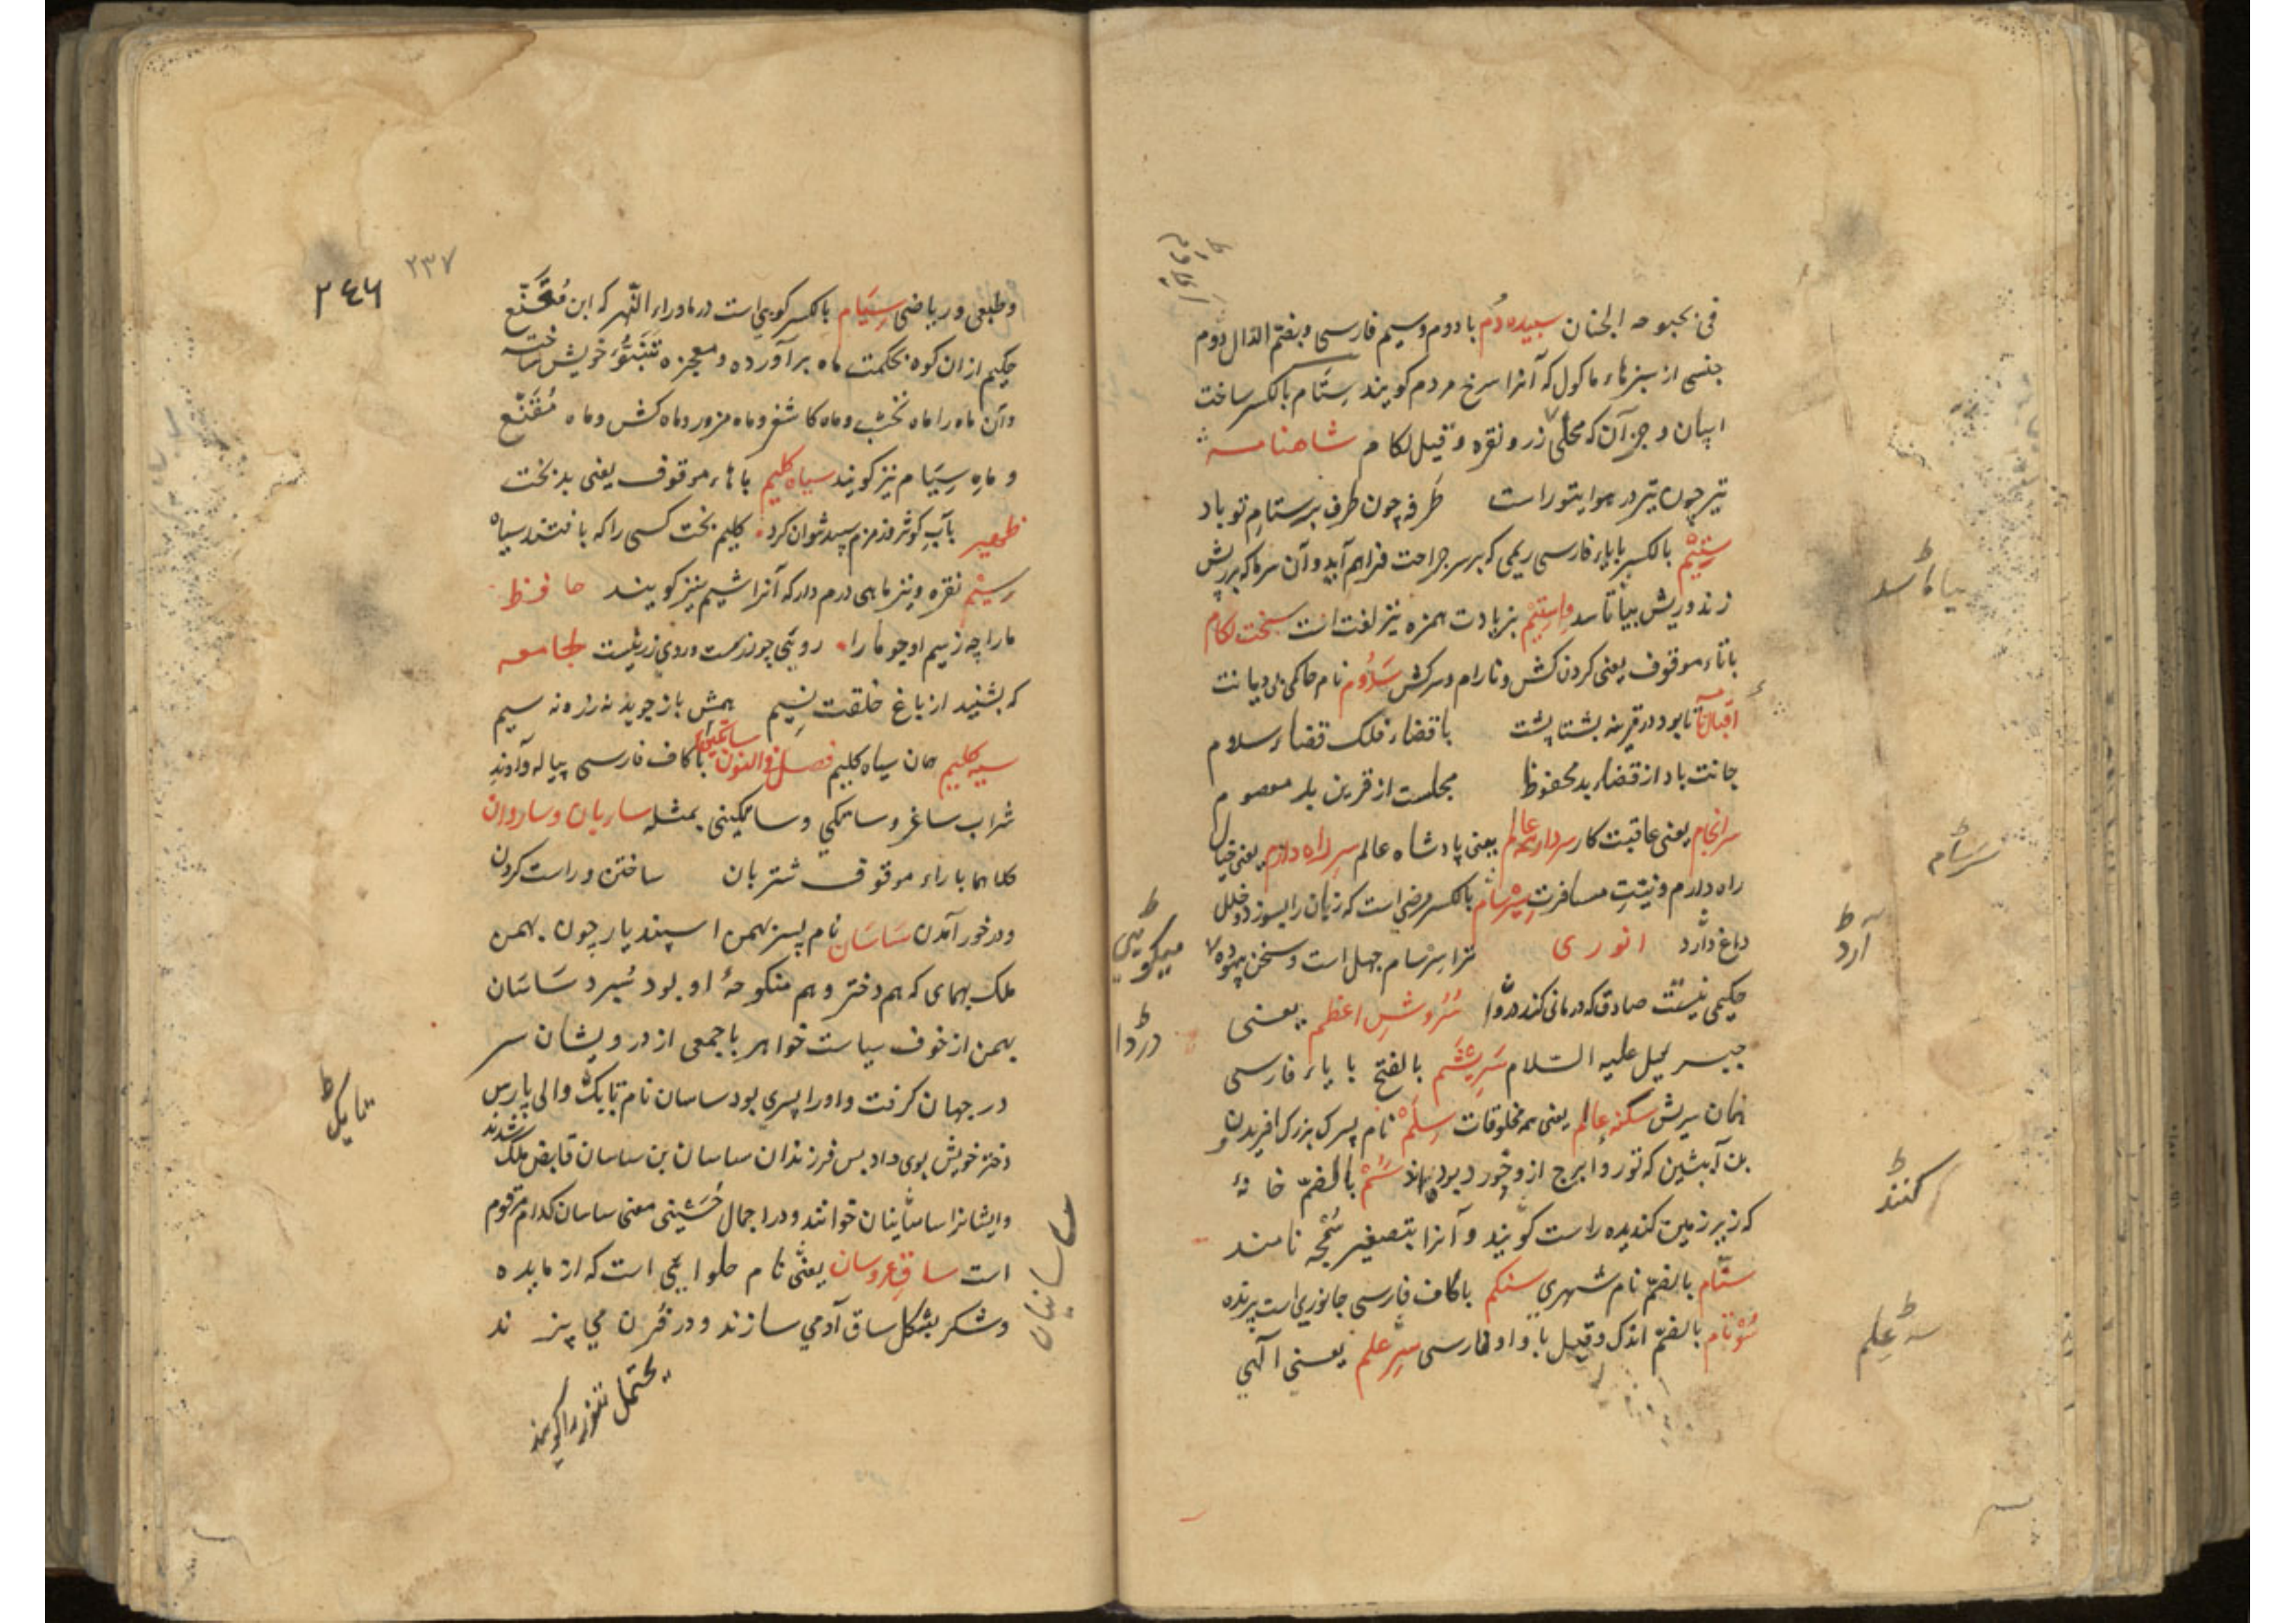 فی بحبوحه الجنان سپیده دم با دوم و سیم فارسی و بضم الدال دوم
جنسی از سبزهاء ماکول که آنرا سرخ مردم کویند ستام بالکسر ساخت
اسپان و جز آن که محلی زر و نقره و قیل لکام شاهنامه
تیر چون تیر در هوا یتو راست طرفه چون طرف بر ستام تو باد
ستیم بالکسر با یاء فارسی ریمی که بر سر جراحت فراهم آید و آن سرما که بر ریش
زند و ریش بیاماسد و استیم بزیادت همزه نیز لغت است سخت لکام
با تاء موقوف یعنی کردن کش و نارام و سرکش سدوم نام حاکمی بی دیانت
اقبال تا بود در قرینه پشتا پشت با قضاء فلک قضاء سدوم
جانت باد از قضاء بد محفوظ مجلست از قرین بد معصوم
سرانجام یعنی عاقبت کار سردار همه عالم یعنی پادشاه عالم سر راه دارم یعنی خیال
راه دارم و نیت مسافرت سرسام بالکسر مرضی است که زبان را بسوزد و خلل
دماغ دارد انوری ترا سرسام جهل است و سخن بیهوده
حکیمی نیست صادق که درمانی کند دردا سروش اعظم یعنی
جبرئیل علیه السلام سریشم بالفتح با یاء فارسی
همان سریش سکنه عالم یعنی همه مخلوقات سلم نام پسرک بزرک افریدون
بن آبتین که تور و ایرج ازو خورد بودند سم بالضم خانهٔ
که زیر زمین کندیده راست کویند و آنرا بتصغیر سمجه نامند
سنام بالضم نام شهری سنکم باکاف فارسی جانوری است پرنده
سوتام بالضم اندک و قیل با واو فارسی سر علم یعنی آلهی
بیاماسد
سرسام
آرد
میکویی
دردا
کنند
سر علم
۲۳۷
۲۴۶
و طبعی و ریاضی سیام بالکسر کوهی است در ماوراء النهر که ابن مقنع
حکیم از ان کوه بحکمت ماه برآورده و معجزه تنبؤ خویش ساخته
و آن ماه را ماه نخشب و ماه کاشغر و ماه مزور و ماه کش و ماه مقنع
و ماه سیام نیز کویند سیاه کلیم با هاء موقوف یعنی بد بخت
ظهیر بآب کوثر و زمزم سپید نتوان کرد کلیم بخت کسی را که بافتند سیاه
سیم نقره و نیز ماهی درم دار که آنرا شیم نیز کویند حافظ
مارا چه ز سیم او چو مارا رویی چو زرست و روی زر نیست لجامعه
که بشنید از باغ خلقت نسیم همش باز جوید نه زر و نه سیم
سیه کلیم همان سیاه کلیم فصل والنون ساتکین با کاف فارسی پیاله و آوند
شراب ساغر و ساتکی و ساتکینی بمثله ساربان و ساروان
کلاهما با راء موقوف شتربان ساختن و راست کردن
و در خور آمدن ساسان نام پسر بهمن اسپندیار چون بهمن
ملک بهمای که هم دختر و هم منکوحهٔ او بود سپرد ساسان
بهمن از خوف سیاست خواهر با جمعی از درویشان سر
در جهان کرفت و او را پسری بود ساسان نام تابک والی پارس
دختر خویش بوی داد پس فرزندان ساسان بن ساسان قابض ملک شدند
و ایشانرا ساسانیان خوانند و در اجمال حسینی معنی ساسان کدام مرقوم
است ساق عروسان یعنی نام حلوایی است که از مایده
و شکر بشکل ساق آدمی سازند و در فرن می پزند
تابک
ساسانیان